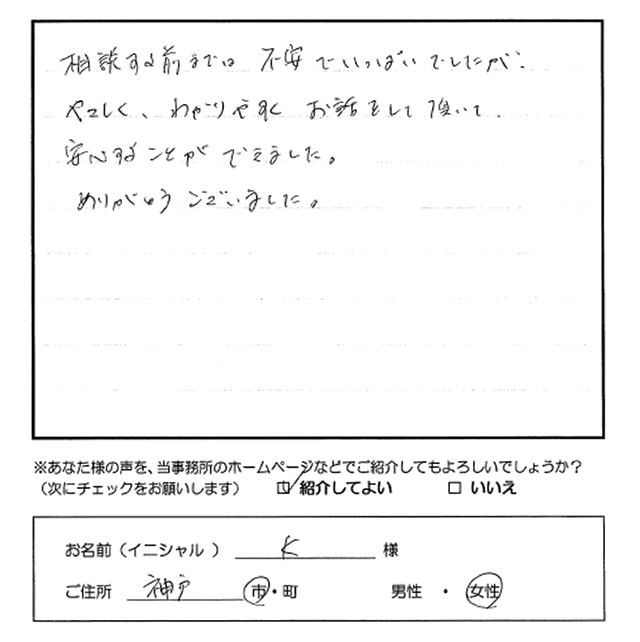 相談する前までは 不安でいっぱいでしたが、
やさしく、わかりやすく お話をして頂いて、
安心することが できました。
ありがとう ございました。
※あなた様の声を、当事務所のホームページなどでご紹介してもよろしいでしょうか?
(次にチェックをお願いします) ☑ 紹介してよい □ いいえ
お名前(イニシャル) K 様
ご住所 神戸 市・町 男性 ・ 女性